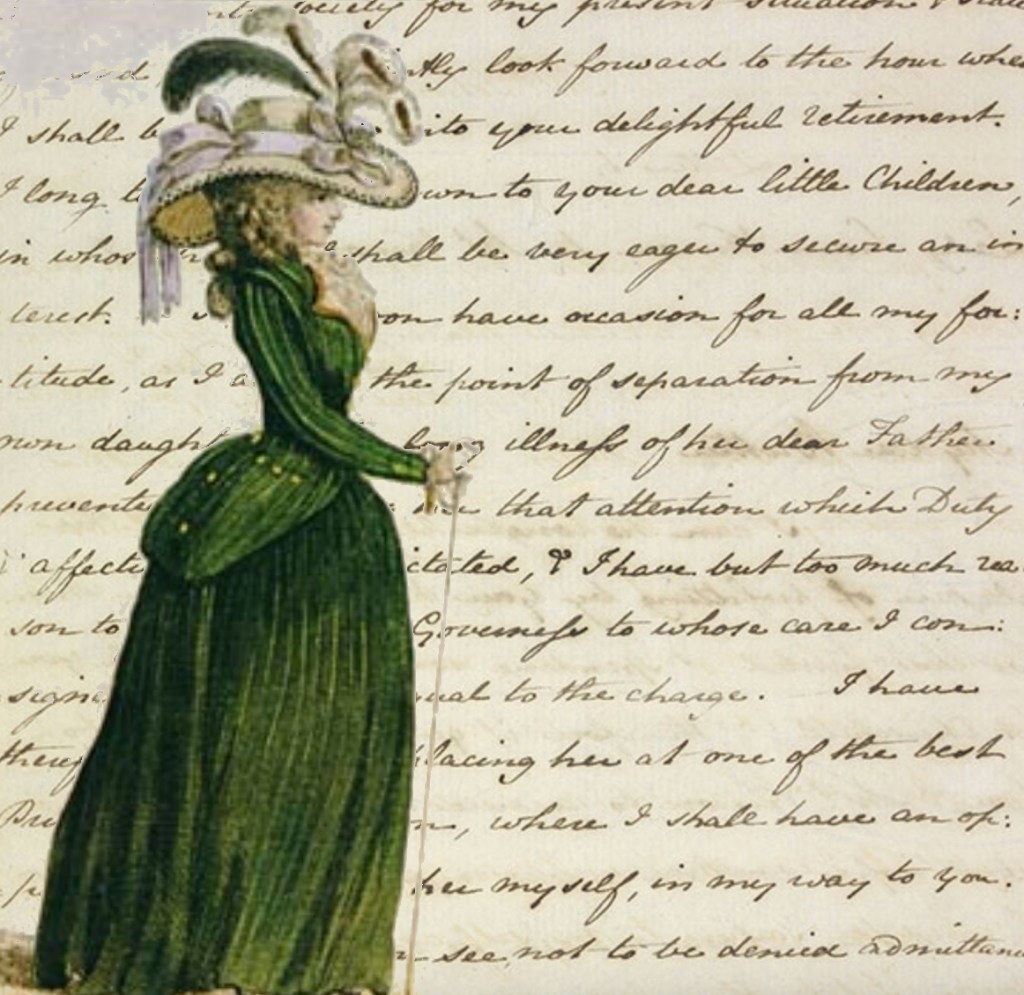 society for my present situation & state
ntly look forward to the hour when
I shall b into your delightful retirement.
I long t own to your dear little Children,
in whos shall be very eager to secure an in
terest. I on have occasion for all my for:
titude, as I a the point of separation from my
own daugh long illneſs of her dear Father
prevente that attention which Duty
& affecti ctated, & I have but too much rea
son to Governeſs to whose care I con:
sign qual to the charge. I have
theref lacing her at one of the best
Pri n, where I shall have an op:
p her myself, in my way to you.
see, not to be denied admittanc